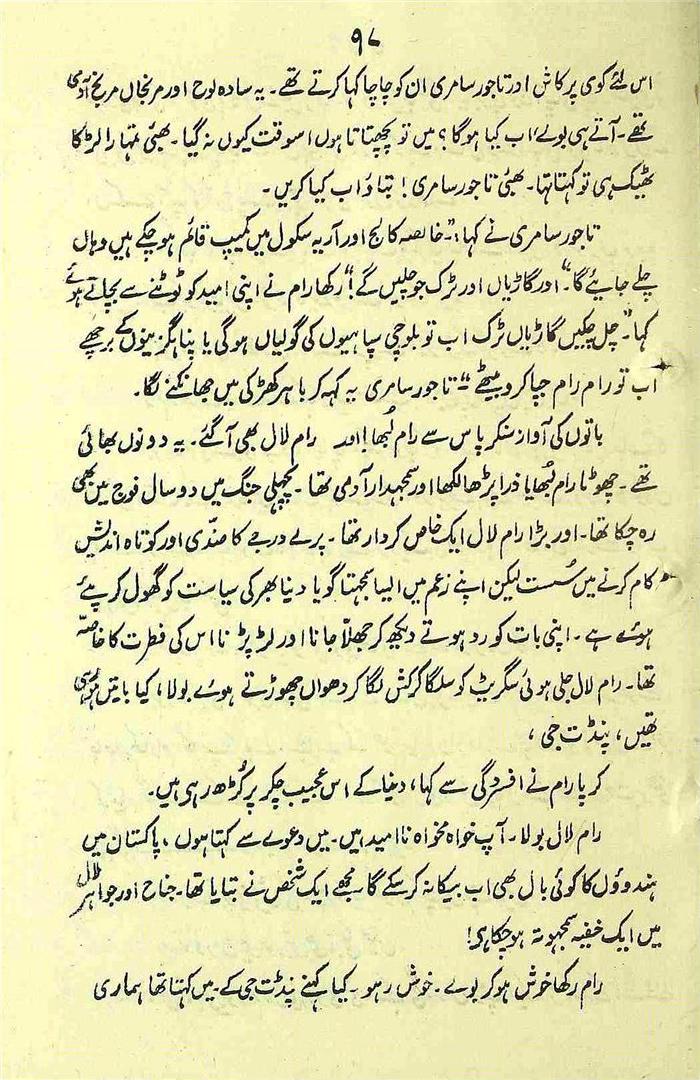 ۹۸
اس لئے کوی پرکاش اور تاجور سامری ان کو چاچا کہا کرتے تھے۔ یہ سادہ لوح اور مرنجاں مرنج آدمی
تھے۔ آتے ہی بولے، اب کیا ہوگا؟ میں تو پچھتاتا ہوں اسوقت کیوں نہ گیا۔ بھئی تمہارا لڑکا
ٹھیک ہی تو کہتا تھا۔ بھئی تاجور سامری! بتاؤ اب کیا کریں۔
تاجور سامری نے کہا:۔"خالصہ کالج اور آریہ سکول میں کیمپ قائم ہو چکے ہیں وہاں
چلے جایئے گا۔" اور گاڑیاں اور ٹرک جو چلیں گے!" رکھا رام نے اپنی امید کو ٹوٹنے سے بچاتے ہوئے
کہا۔" چل چکیں گاڑیاں ٹرک اب تو بلوچی سپاہیوں کی گولیاں ہوگی یا پناہگزینوں کے برچھے
اب تو رام رام جپا کرو بیٹھے"۔ تاجور سامری یہ کہہ کر باہر کھڑکی میں جھانکنے لگا۔
باتوں کی آواز سنکر پاس سے رام لُبھایا اور رام لال بھی آگئے۔ یہ دونوں بھائی
تھے۔ چھوٹا رام لُبھایا ذرا پڑھا لکھا اور سمجہدار آدمی تھا۔ پچھلی جنگ میں دو سال فوج میں بھی
رہ چکا تھا۔ اور بڑا رام لال ایک خاص کردار تھا۔ پرلے درجے کا ضدّی اور کوتاہ اندیش
کام کرنے میں سُست لیکن اپنے زعم میں ایسا سمجہتا گویا دنیا بھر کی سیاست کو گھول کر پئے
ہوئے ہے۔ اپنی بات کو رد ہوتے دیکھ کر جھلاّ جانا اور لڑ پڑنا اس کی فطرت کا خاصّہ
تھا۔ رام لال جلی ہوئی سگریٹ کو سلگا کر کش لگا کر دھواں چھوڑتے ہوئے بولا، کیا باتیں ہو رہی
تھیں، پنڈت جی،
کرپا رام نے افسردگی سے کہا، دنیا کے اس عجیب چکر پر کُڑھ رہی ہیں۔
رام لال بولا۔ آپ خواہ مخواہ ناامید ہیں۔ میں دعوے سے کہتا ہوں، پاکستان میں
ہندوؤں کا کوئی بال بھی اب بیکا نہ کرسکے گا مجھے ایک شخص نے بتایا تھا۔ جناح اور جواہر لال
میں ایک خفیہ سمجہوتہ ہو چکا ہے!
رام رکھا خوش ہو کر بولے۔ خوش رہو۔ کیا کہنے پنڈت جی کے۔ میں کہتا تھا ہماری